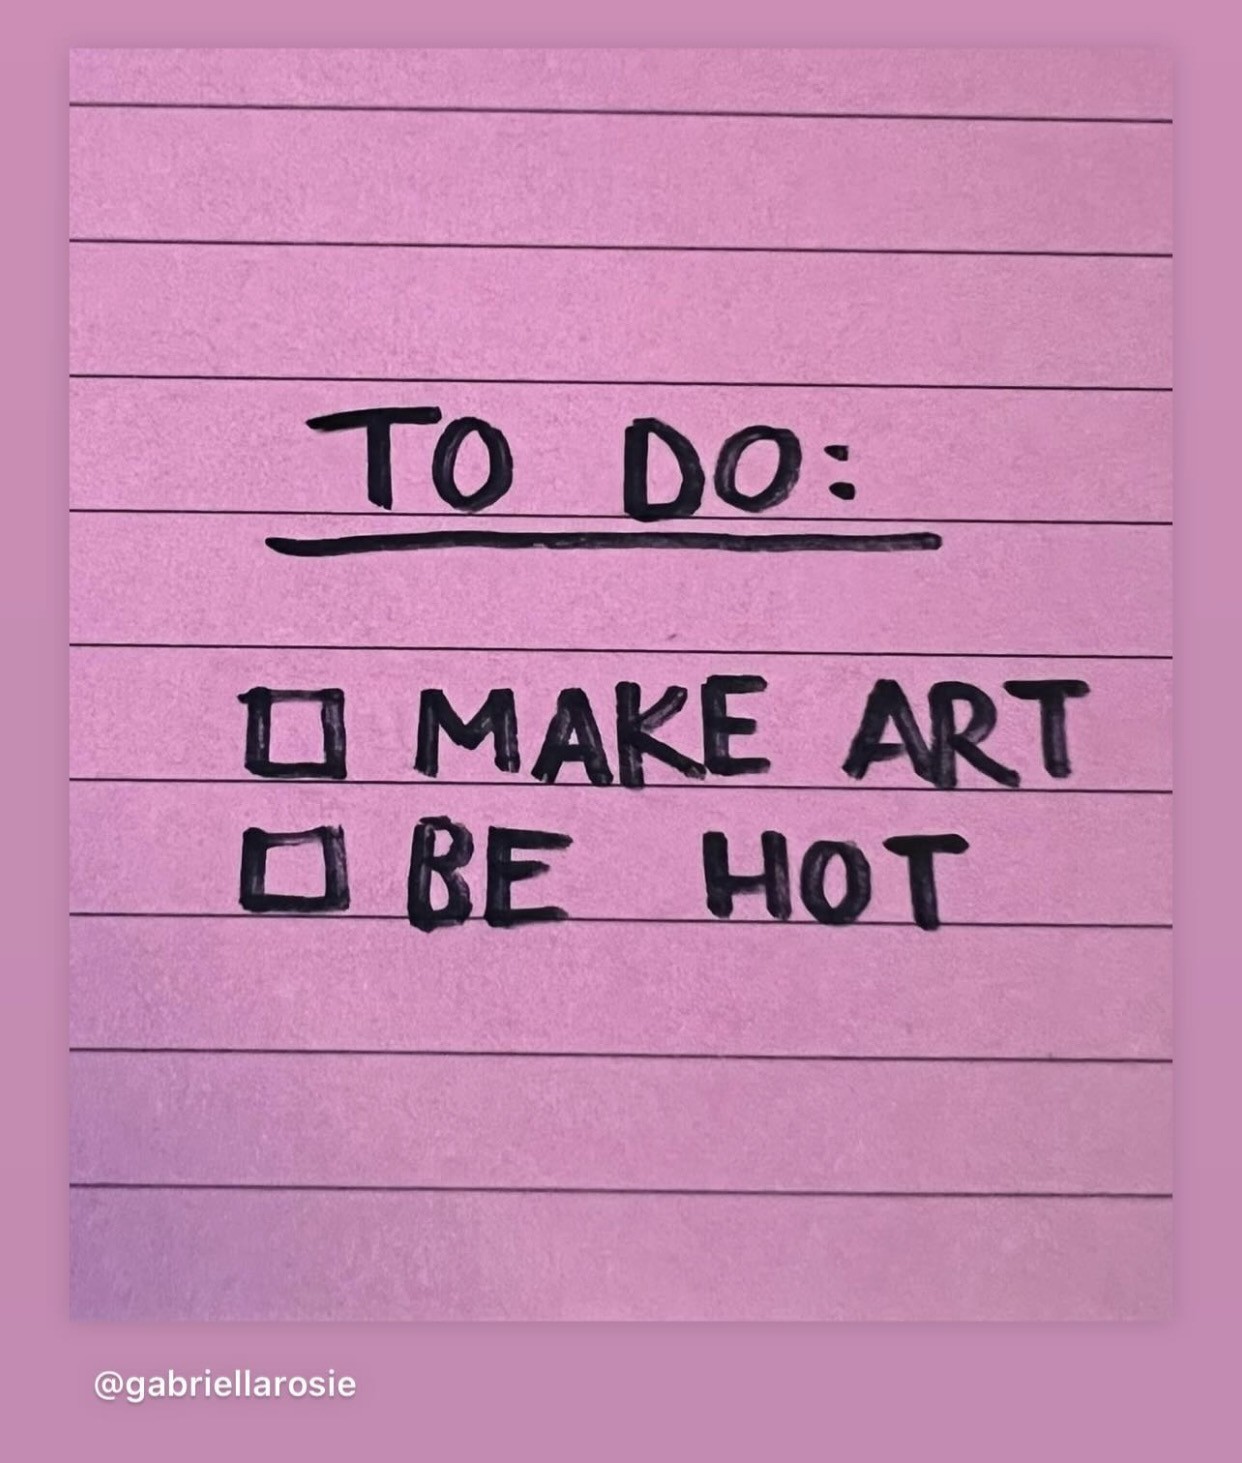 TO DO:
MAKE ART
BE HOT
@gabriellarosie